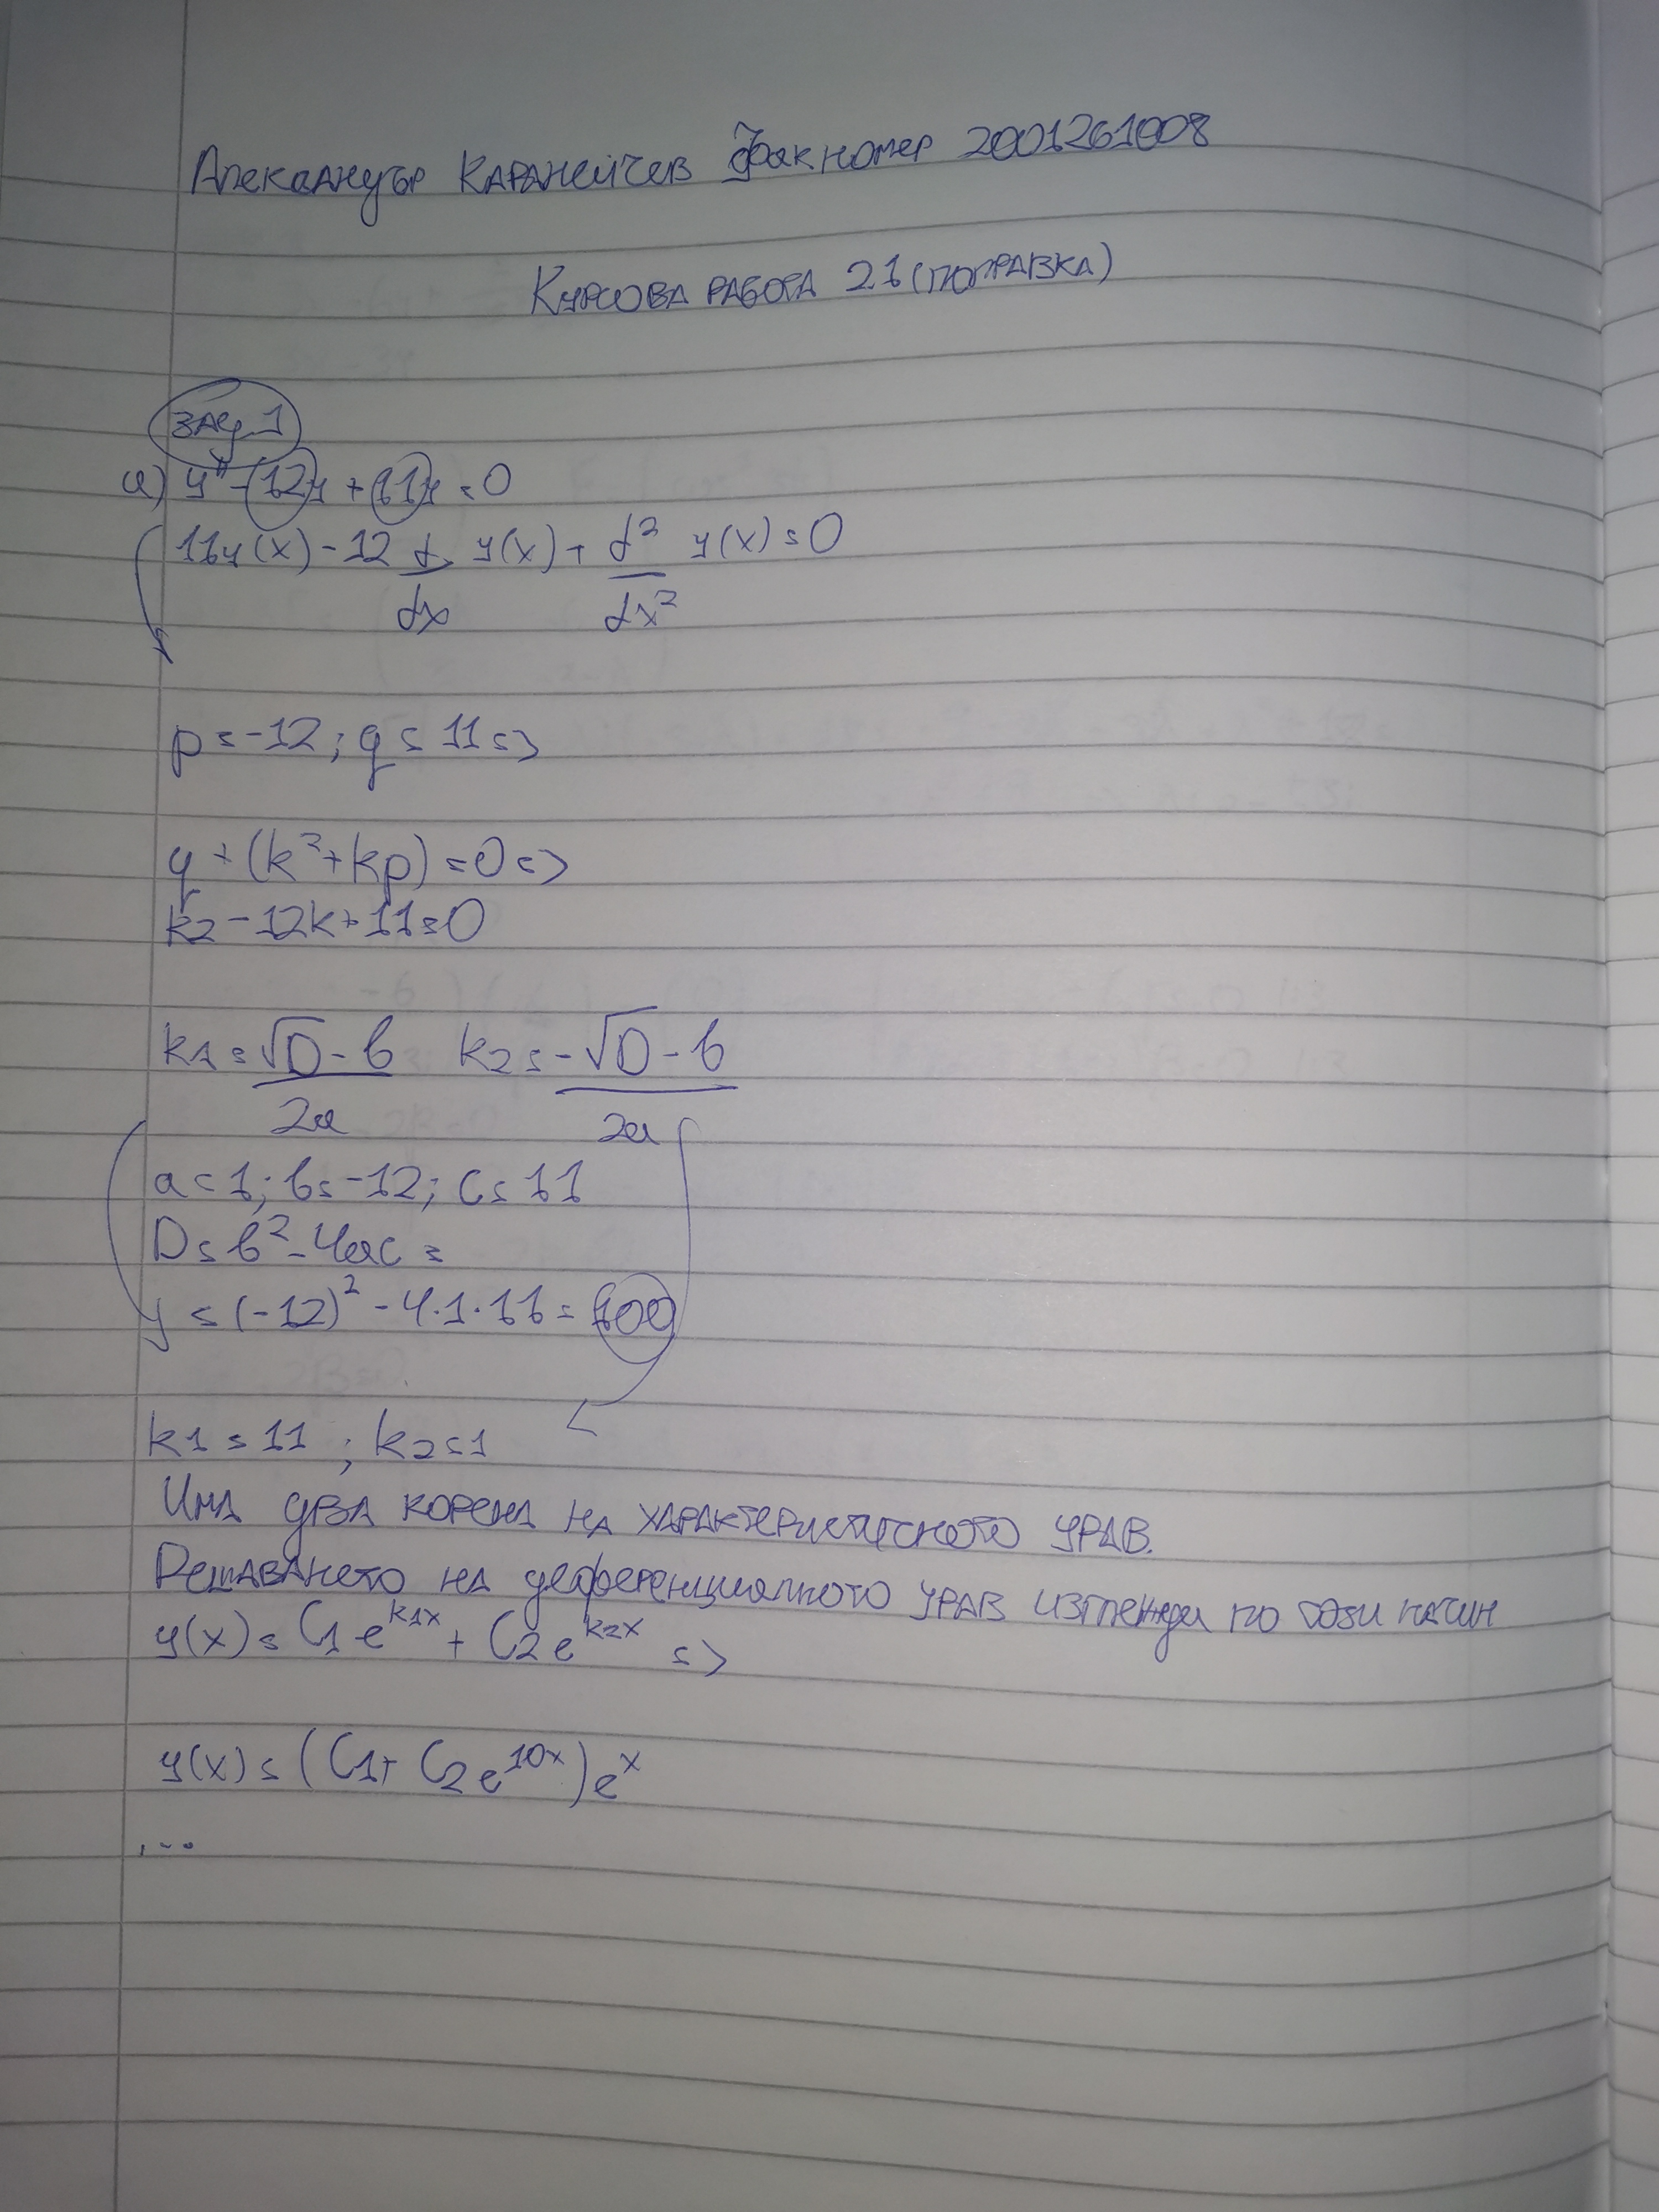 Александър Каранейчев Факномер 2001261008
Курсова работа 21 (поправка)
зад.1
а) y'' - 12y + 11y = 0
11y(x) - 12 d/dx y(x) + d²/dx² y(x) = 0
p = -12; q = 11 =>
q + (k² + kp) = 0 =>
k2 - 12k + 11 = 0
k1 = √D - b / 2a k2 = -√D - b / 2a
a = 1; b = -12; c = 11
D = b² - 4ac =
= (-12)² - 4.1.11 = 100
k1 = 11 ; k2 = 1
Има два корена на характеристичното урав.
Решаването на деференциялното урав изглежда по този начин
y(x) = C1 e^k1x + C2 e^k2x =>
y(x) = (C1 + C2 e^10x) e^x
...